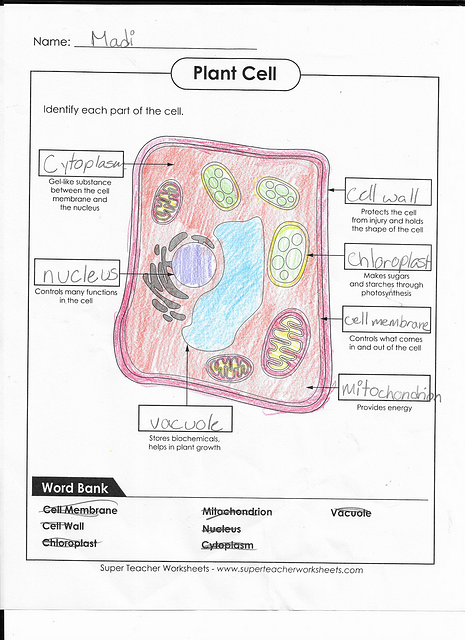 Name: Madi
Plant Cell
Identify each part of the cell.
Cytoplasm
Gel-like substance
between the cell
membrane and
the nucleus
cell wall
Protects the cell
from injury and holds
the shape of the cell
chloroplast
Makes sugars
and starches through
photosynthesis
nucleus
Controls many functions
in the cell
cell membrane
Controls what comes
in and out of the cell
mitochondrion
Provides energy
vacuole
Stores biochemicals,
helps in plant growth
Word Bank
Cell Membrane Mitochondrion Vacuole
Cell Wall Nucleus
Chloroplast Cytoplasm
Super Teacher Worksheets - www.superteacherworksheets.com